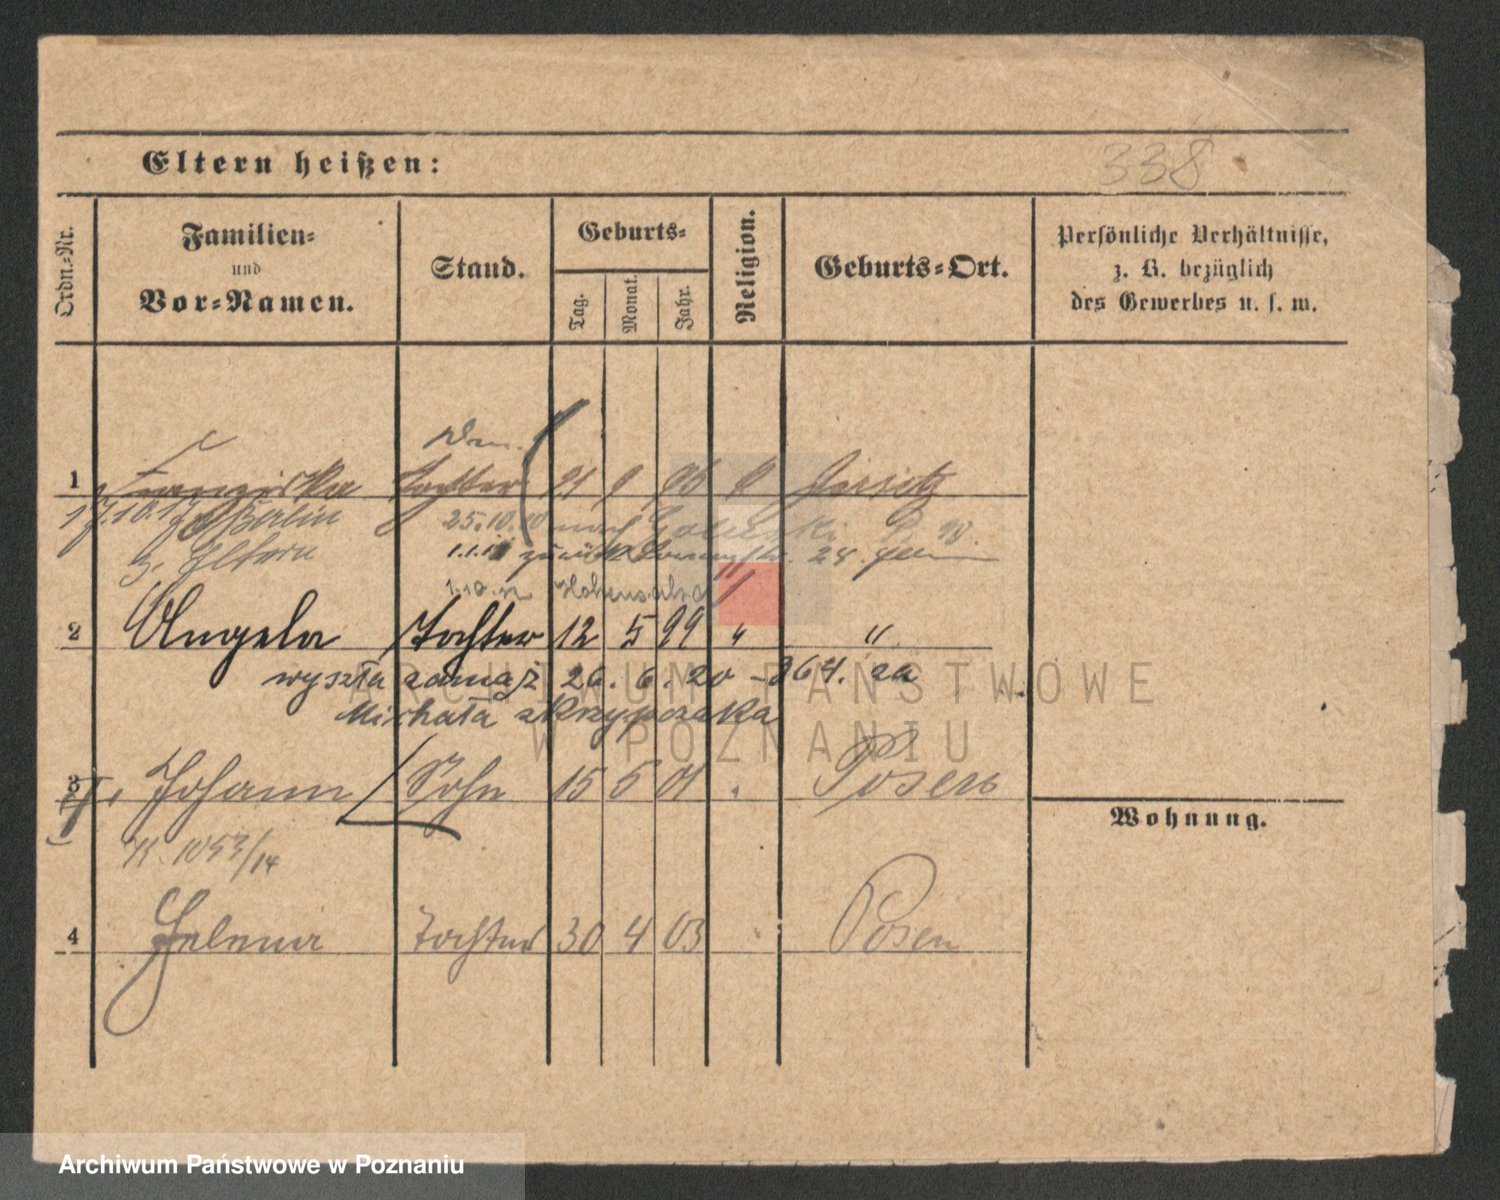 338
Eltern heißen:
Ordn.-Nr.
Familien-
und
Vor-Namen.
Stand.
Geburts-
Tag.
Monat.
Jahr.
Religion.
Geburts-Ort.
Persönliche Verhältnisse,
z. B. bezüglich
des Gewerbes u. s. w.
1 Franziska Tochter 21 9 Jersitz
17.10.17 Berlin 25.10.10 nach
z. Eltern 1.1.11 zurück 24.
1.10.12 Hohensalza
2 Angela Tochter 12 5 99 " "
wyszła zamąż 26. 6. 20 - 864. za
Michała Skrzypczaka
3 Johann Sohn 15 5 01 " Posen
K. 1053/14
Wohnung.
4 Helena Tochter 30 4 03 " Posen
ARCHIWUM PAŃSTWOWE
W POZNANIU
Archiwum Państwowe w Poznaniu